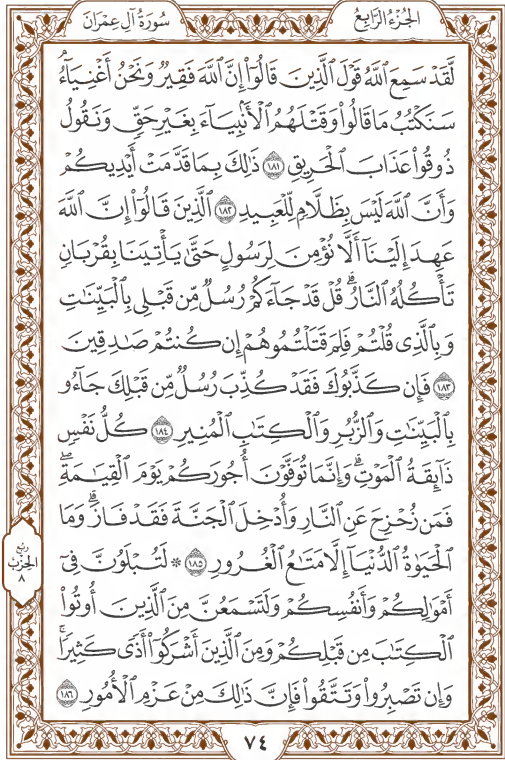 الجُزْءُ الرَّابِعُ
سُورَةُ آلِ عِمْرَانَ
لَّقَدْ سَمِعَ ٱللَّهُ قَوْلَ ٱلَّذِينَ قَالُوٓا۟ إِنَّ ٱللَّهَ فَقِيرٌ وَنَحْنُ أَغْنِيَآءُ
سَنَكْتُبُ مَا قَالُوا۟ وَقَتْلَهُمُ ٱلْأَنۢبِيَآءَ بِغَيْرِ حَقٍّ وَنَقُولُ
ذُوقُوا۟ عَذَابَ ٱلْحَرِيقِ ١٨١ ذَٰلِكَ بِمَا قَدَّمَتْ أَيْدِيكُمْ
وَأَنَّ ٱللَّهَ لَيْسَ بِظَلَّامٍ لِّلْعَبِيدِ ١٨٢ ٱلَّذِينَ قَالُوٓا۟ إِنَّ ٱللَّهَ
عَهِدَ إِلَيْنَآ أَلَّا نُؤْمِنَ لِرَسُولٍ حَتَّىٰ يَأْتِيَنَا بِقُرْبَانٍ
تَأْكُلُهُ ٱلنَّارُ ۗ قُلْ قَدْ جَآءَكُمْ رُسُلٌ مِّن قَبْلِى بِٱلْبَيِّنَٰتِ
وَبِٱلَّذِى قُلْتُمْ فَلِمَ قَتَلْتُمُوهُمْ إِن كُنتُمْ صَٰدِقِينَ
١٨٣ فَإِن كَذَّبُوكَ فَقَدْ كُذِّبَ رُسُلٌ مِّن قَبْلِكَ جَآءُو
بِٱلْبَيِّنَٰتِ وَٱلزُّبُرِ وَٱلْكِتَٰبِ ٱلْمُنِيرِ ١٨٤ كُلُّ نَفْسٍ
ذَآئِقَةُ ٱلْمَوْتِ ۗ وَإِنَّمَا تُوَفَّوْنَ أُجُورَكُمْ يَوْمَ ٱلْقِيَٰمَةِ ۖ
فَمَن زُحْزِحَ عَنِ ٱلنَّارِ وَأُدْخِلَ ٱلْجَنَّةَ فَقَدْ فَازَ ۗ وَمَا
ٱلْحَيَوٰةُ ٱلدُّنْيَآ إِلَّا مَتَٰعُ ٱلْغُرُورِ ١٨٥ ۞ لَتُبْلَوُنَّ فِىٓ
أَمْوَٰلِكُمْ وَأَنفُسِكُمْ وَلَتَسْمَعُنَّ مِنَ ٱلَّذِينَ أُوتُوا۟
ٱلْكِتَٰبَ مِن قَبْلِكُمْ وَمِنَ ٱلَّذِينَ أَشْرَكُوٓا۟ أَذًى كَثِيرًا ۚ
وَإِن تَصْبِرُوا۟ وَتَتَّقُوا۟ فَإِنَّ ذَٰلِكَ مِنْ عَزْمِ ٱلْأُمُورِ ١٨٦
ربع
الحزب
٨
٧٤